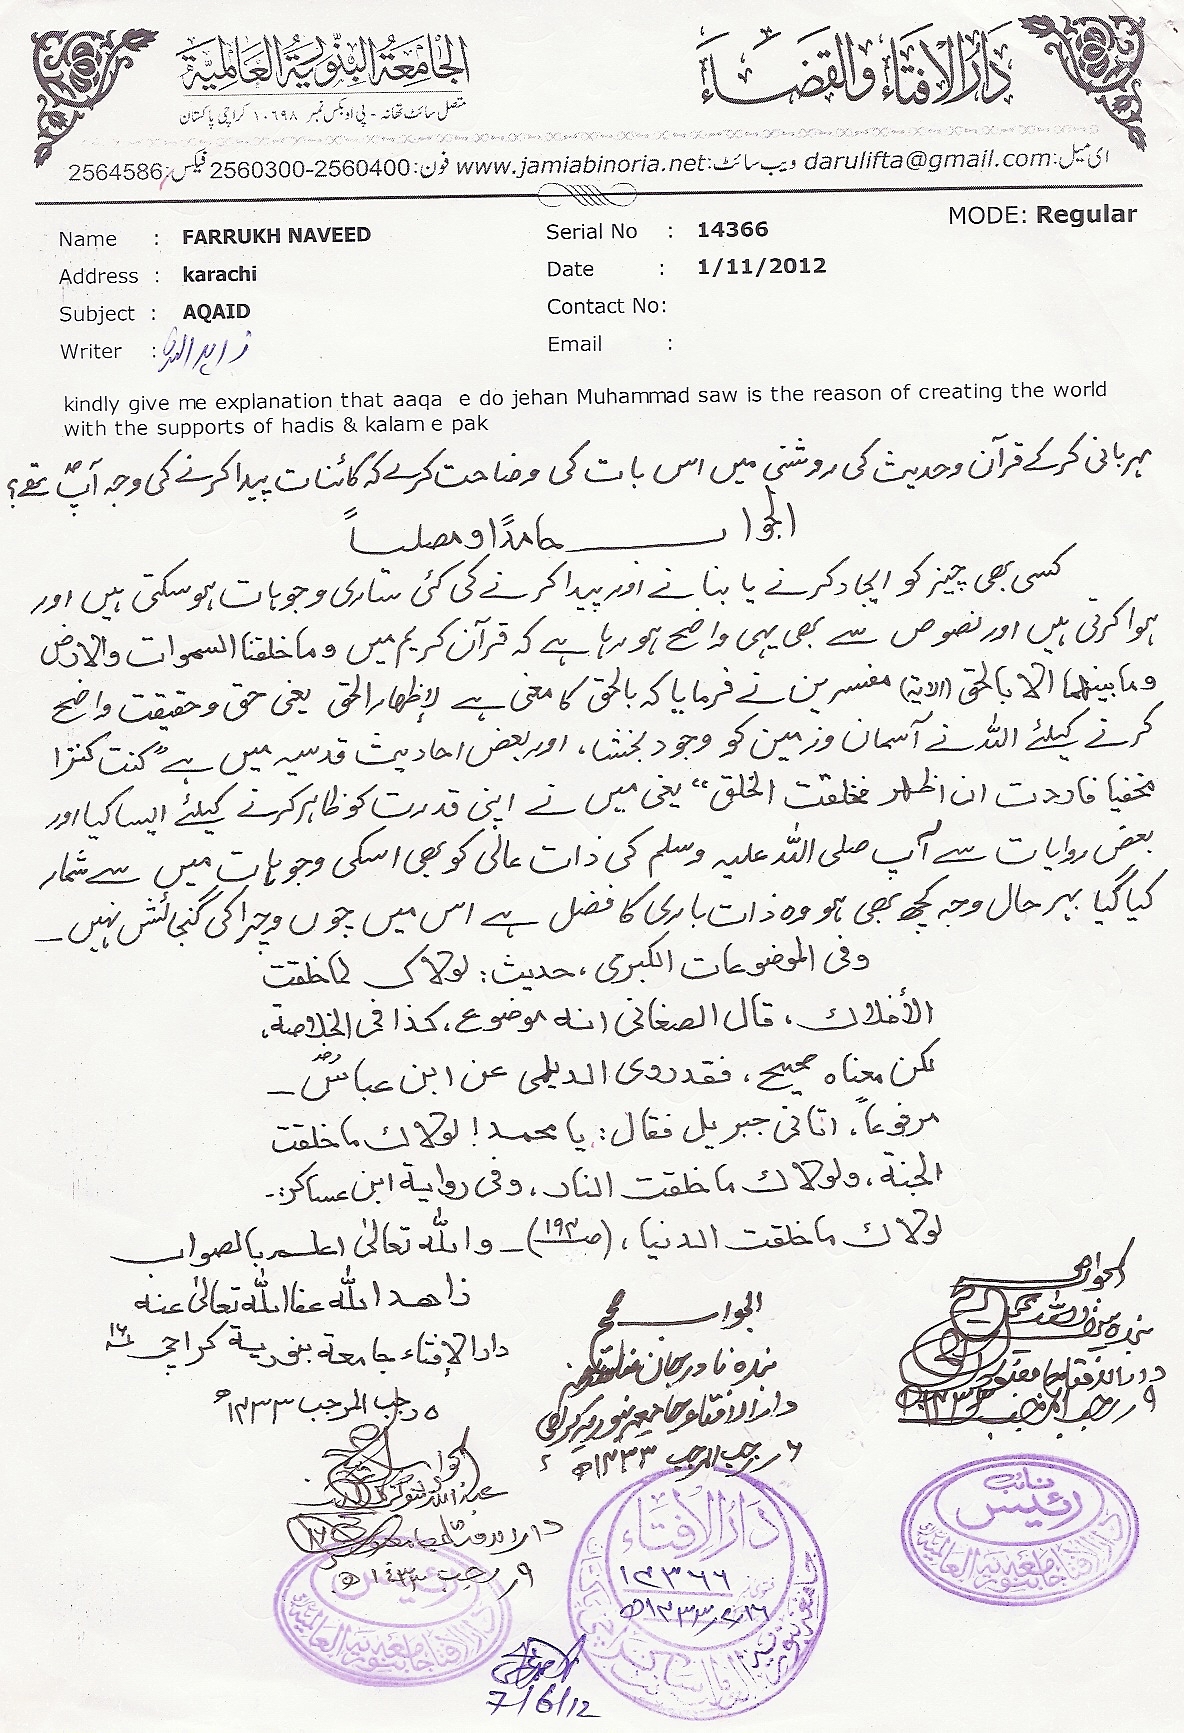 دَارُالْاِفْتَاء وَالْقَضَاء
الجَامِعَةُ البِنّورِيَّةُ العَالمِيَّة
متصل سائٹ تھانہ - پی او بکس نمبر ۱۰۶۹۸ کراچی پاکستان
ای میل: darulifta@gmail.com ویب سائٹ: www.jamiabinoria.net فون: 2560300-2560400 فیکس: 2564586
MODE: Regular
Name : FARRUKH NAVEED
Serial No : 14366
Address : karachi
Date : 1/11/2012
Subject : AQAID
Contact No:
Writer :
Email :
kindly give me explanation that aaqa e do jehan Muhammad saw is the reason of creating the world
with the supports of hadis & kalam e pak
مہربانی کرکے قرآن وحدیث کی روشنی میں اس بات کی وضاحت کرے کہ کائنات پیدا کرنے کی وجہ آپؐ تھے؟
الجواب حامدًا ومصلیاً
کسی بھی چیز کو ایجاد کرنے یا بنانے اور پیدا کرنے کی کئی ساری وجوہات ہوسکتی ہیں اور
ہوا کرتی ہیں اور نصوص سے بھی یہی واضح ہو رہا ہے کہ قرآن کریم میں وما خلقنا السموات والارض
وما بینھما الا بالحق (الآیۃ) مفسرین نے فرمایا کہ بالحق کا معنی ہے لإظھار الحق یعنی حق وحقیقت واضح
کرنے کیلئے اللہ نے آسمان وزمین کو وجود بخشا، اور بعض احادیث قدسیہ میں ہے "کنت کنزا
مخفیا فاردت ان اظہر فخلقت الخلق" یعنی میں نے اپنی قدرت کو ظاہر کرنے کیلئے ایسا کیا اور
بعض روایات سے آپ صلی اللہ علیہ وسلم کی ذات عالی کو بھی اسکی وجوہات میں سے شمار
کیا گیا بہرحال وجہ کچھ بھی ہو وہ ذات باری کا فضل ہے اس میں چوں وچرا کی گنجائش نہیں ـ
وفی الموضوعات الکبری، حدیث: لولاک لما خلقت
الأفلاک، قال الصغانی انہ موضوع، کذا فی الخلاصۃ،
لکن معناہ صحیح، فقد روی الدیلمی عن ابن عباسؓ ـ
مرفوعاً، اتانی جبریل فقال: یا محمد! لولاک ما خلقت
الجنۃ، ولولاک ما خلقت النار، وفی روایۃ ابن عساکر:ـ
لولاک ما خلقت الدنیا، (ص۱۹۴) ـ واللہ تعالیٰ اعلم بالصواب
زاھد اللہ عفا اللہ تعالیٰ عنہ
دار الإفتاء جامعۃ بنوریۃ کراچی ۱۶
۵ رجب المرجب ۱۴۳۳ھ
الجواب صحیح
بندہ نادر جان
دار الافتاء جامعہ بنوریہ کراچی
۶ رجب المرجب ۱۴۳۳ھ
الجواب صحیح
بندہ سیف اللہ
دار الافتاء جامعہ بنوریہ
۹ رجب المرجب ۱۴۳۳ھ
الجواب
دار الافتاء جامعہ بنوریہ
۹ رجب ۱۴۳۳ھ
نائب
رئیس
دارالافتا جامعہ بنوریہ العالمیہ
رئیس
دارالافتا جامعہ بنوریہ العالمیہ
دَارُالاِفْتَاء
۱۴۳۶۶
7/6/12